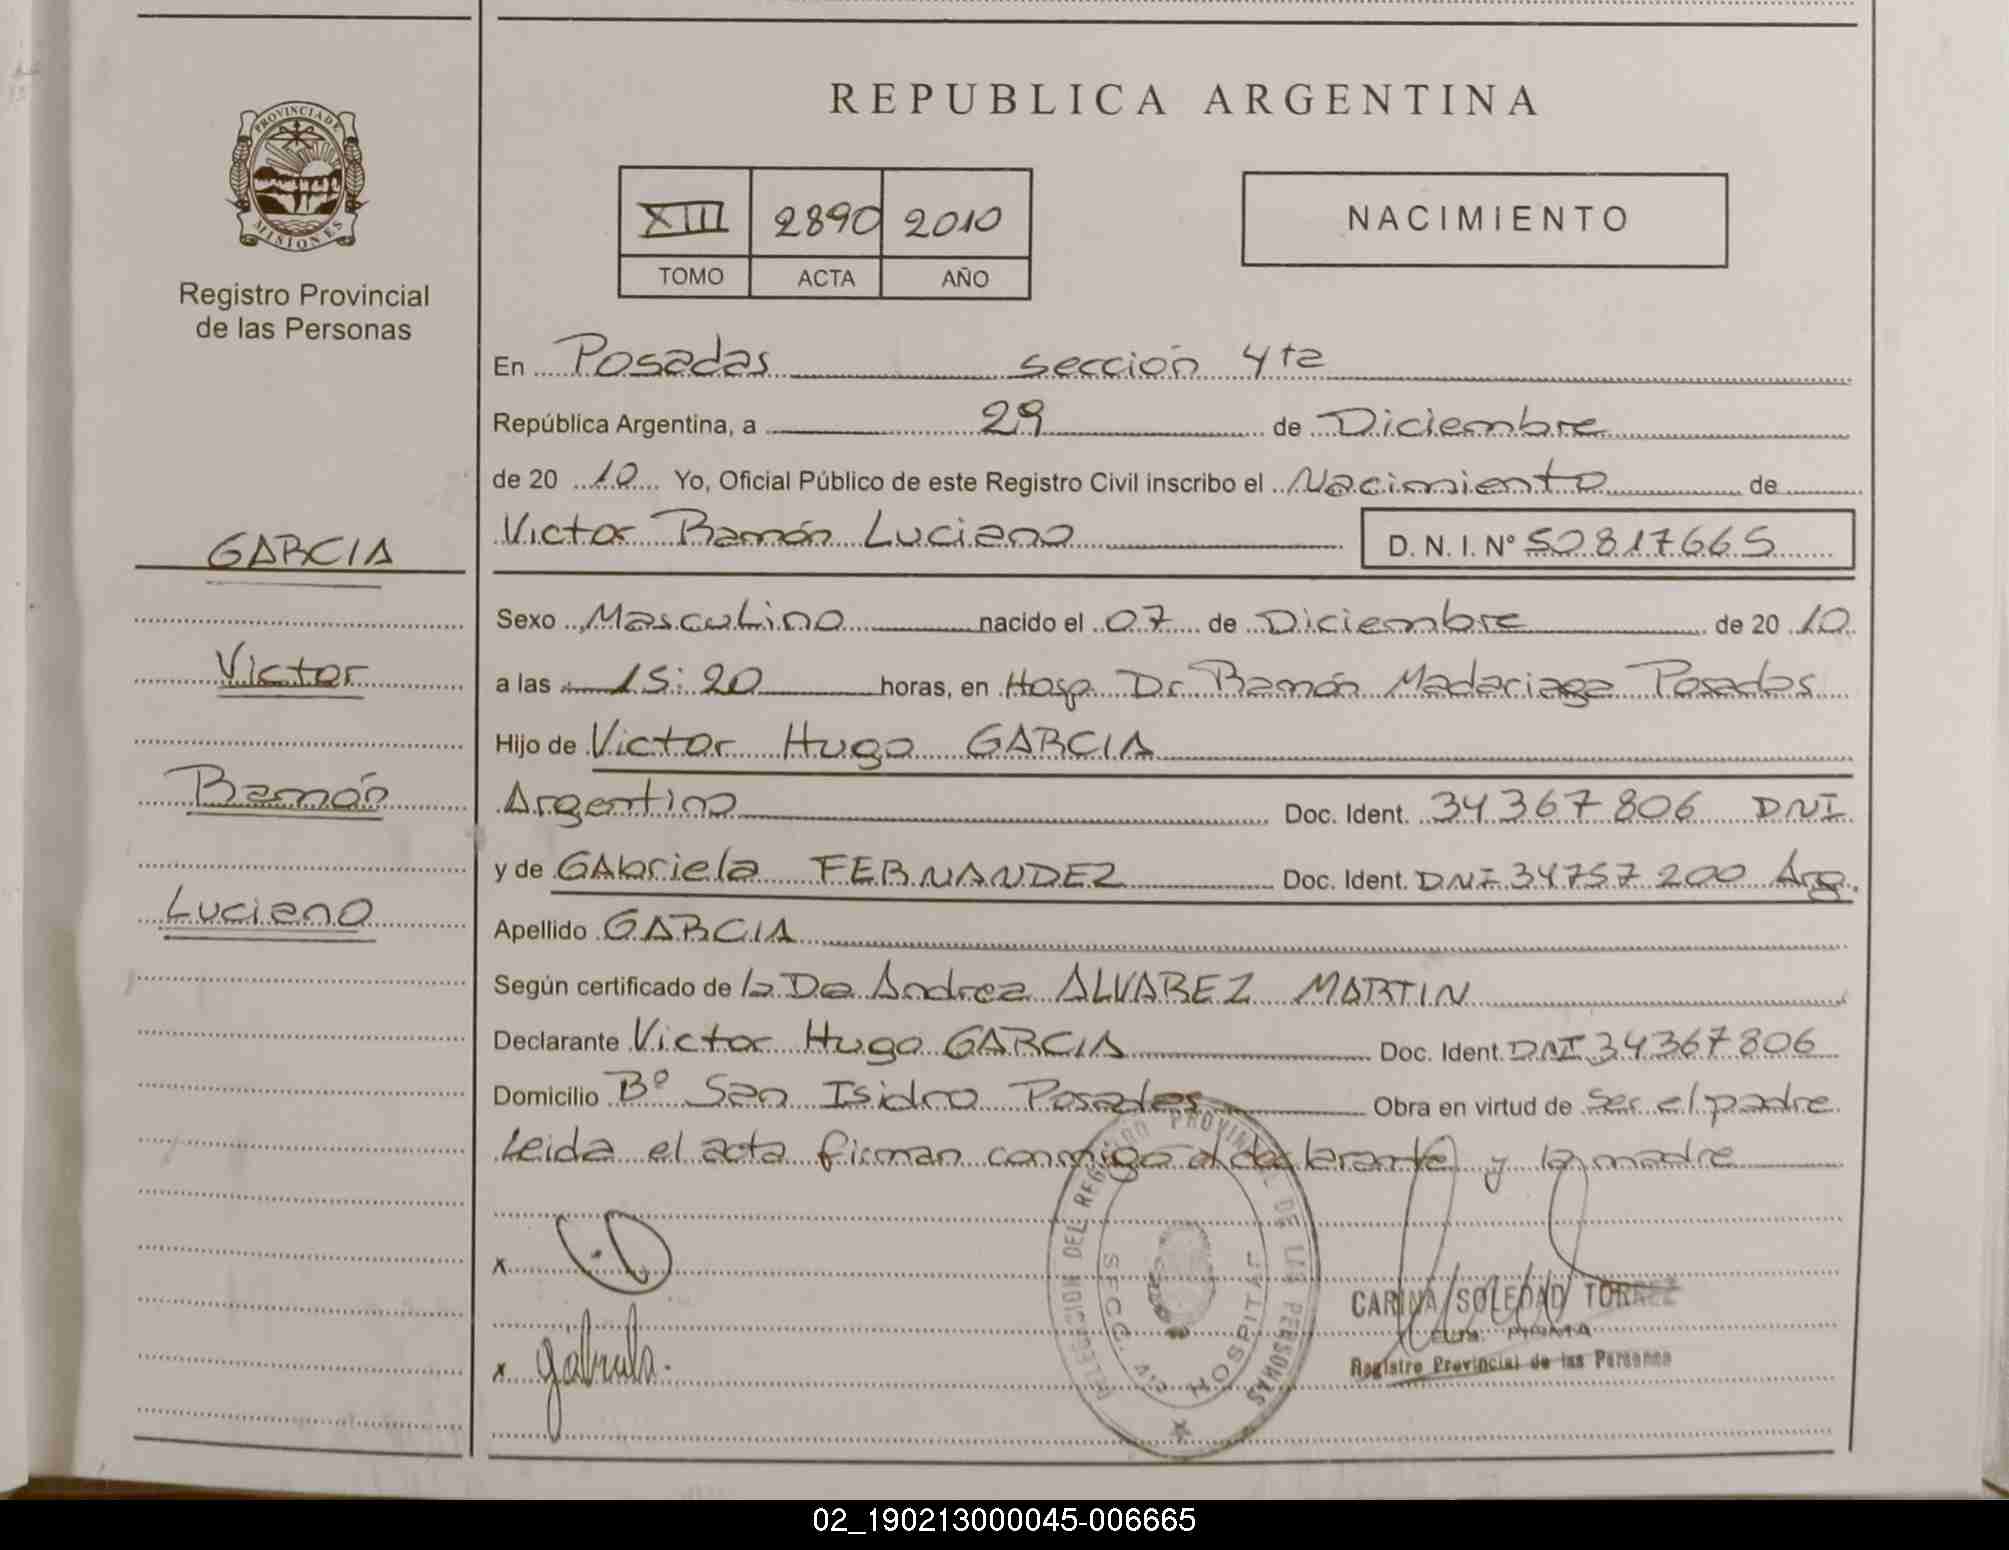 REPUBLICA ARGENTINA
PROVINCIA DE
MISIONES
Registro Provincial
de las Personas
XIII 2890 2010
TOMO ACTA AÑO
NACIMIENTO
GARCIA
Victor
Ramón
Luciano
En Posadas sección 4ta
República Argentina, a 29 de Diciembre
de 2010 Yo, Oficial Público de este Registro Civil inscribo el Nacimiento de
Victor Ramón Luciano D. N. I. Nº 50817665
Sexo Masculino nacido el 07 de Diciembre de 2010
a las 15:20 horas, en Hosp Dr Ramón Madariaga Posadas
Hijo de Victor Hugo GARCIA
Argentino Doc. Ident. 34367806 DNI
y de GAbriela FERNANDEZ Doc. Ident. DNI 34757200 Arg.
Apellido GARCIA
Según certificado de la Da Andrea ALVAREZ MARTIN
Declarante Victor Hugo GARCIA Doc. Ident. DNI 34367806
Domicilio Bº San Isidro Posadas Obra en virtud de Ser el padre
Leida el acta firman conmigo el declarante y la madre
x
x gabriela.
DELEGACION DEL REGISTRO PROVINCIAL DE LAS PERSONAS
SECC. 4ta HOSPITAL
CARINA SOLEDAD TORREZ
FIRMA
Registro Provincial de las Personas
02_190213000045-006665